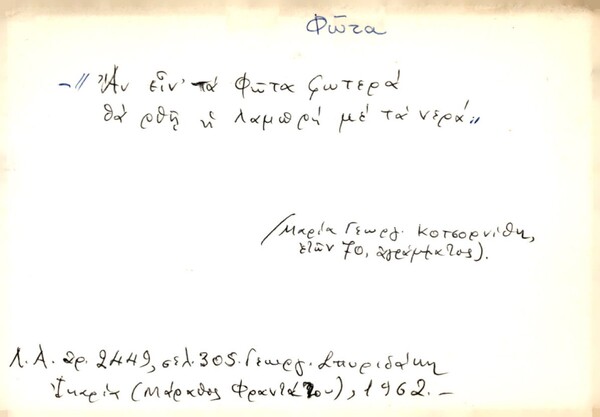 Φῶτα
—"Ἂν εἶν' τὰ Φῶτα φωτερά
θά ρθῇ ἡ λαμπρή μέ τά νερά"
(Μαρία Γεωργ. Κοτσορνίθη,
ἐτῶν 70, ἀγράμματος).
Λ.Α. ἀρ. 2449, σελ. 305. Γεωργ. Σπυριδάκη
Ἰκαρία (Μάραθος Φραντάτου), 1962. —